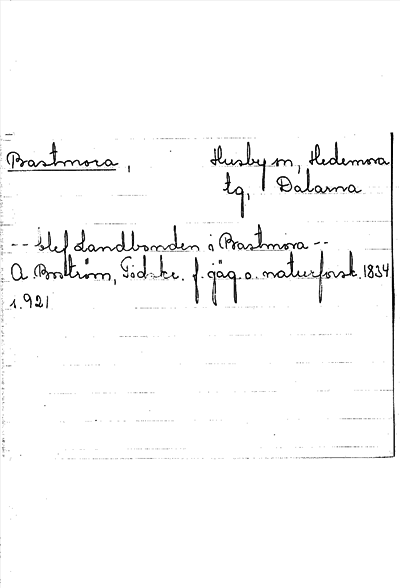 Bastmora, Husby sn, Hedemora
tg, Dalarna
-- blef Landbonden i Bastmora --
A Boström, Tidskr. f. jäg. o. naturforsk. 1834
s. 921